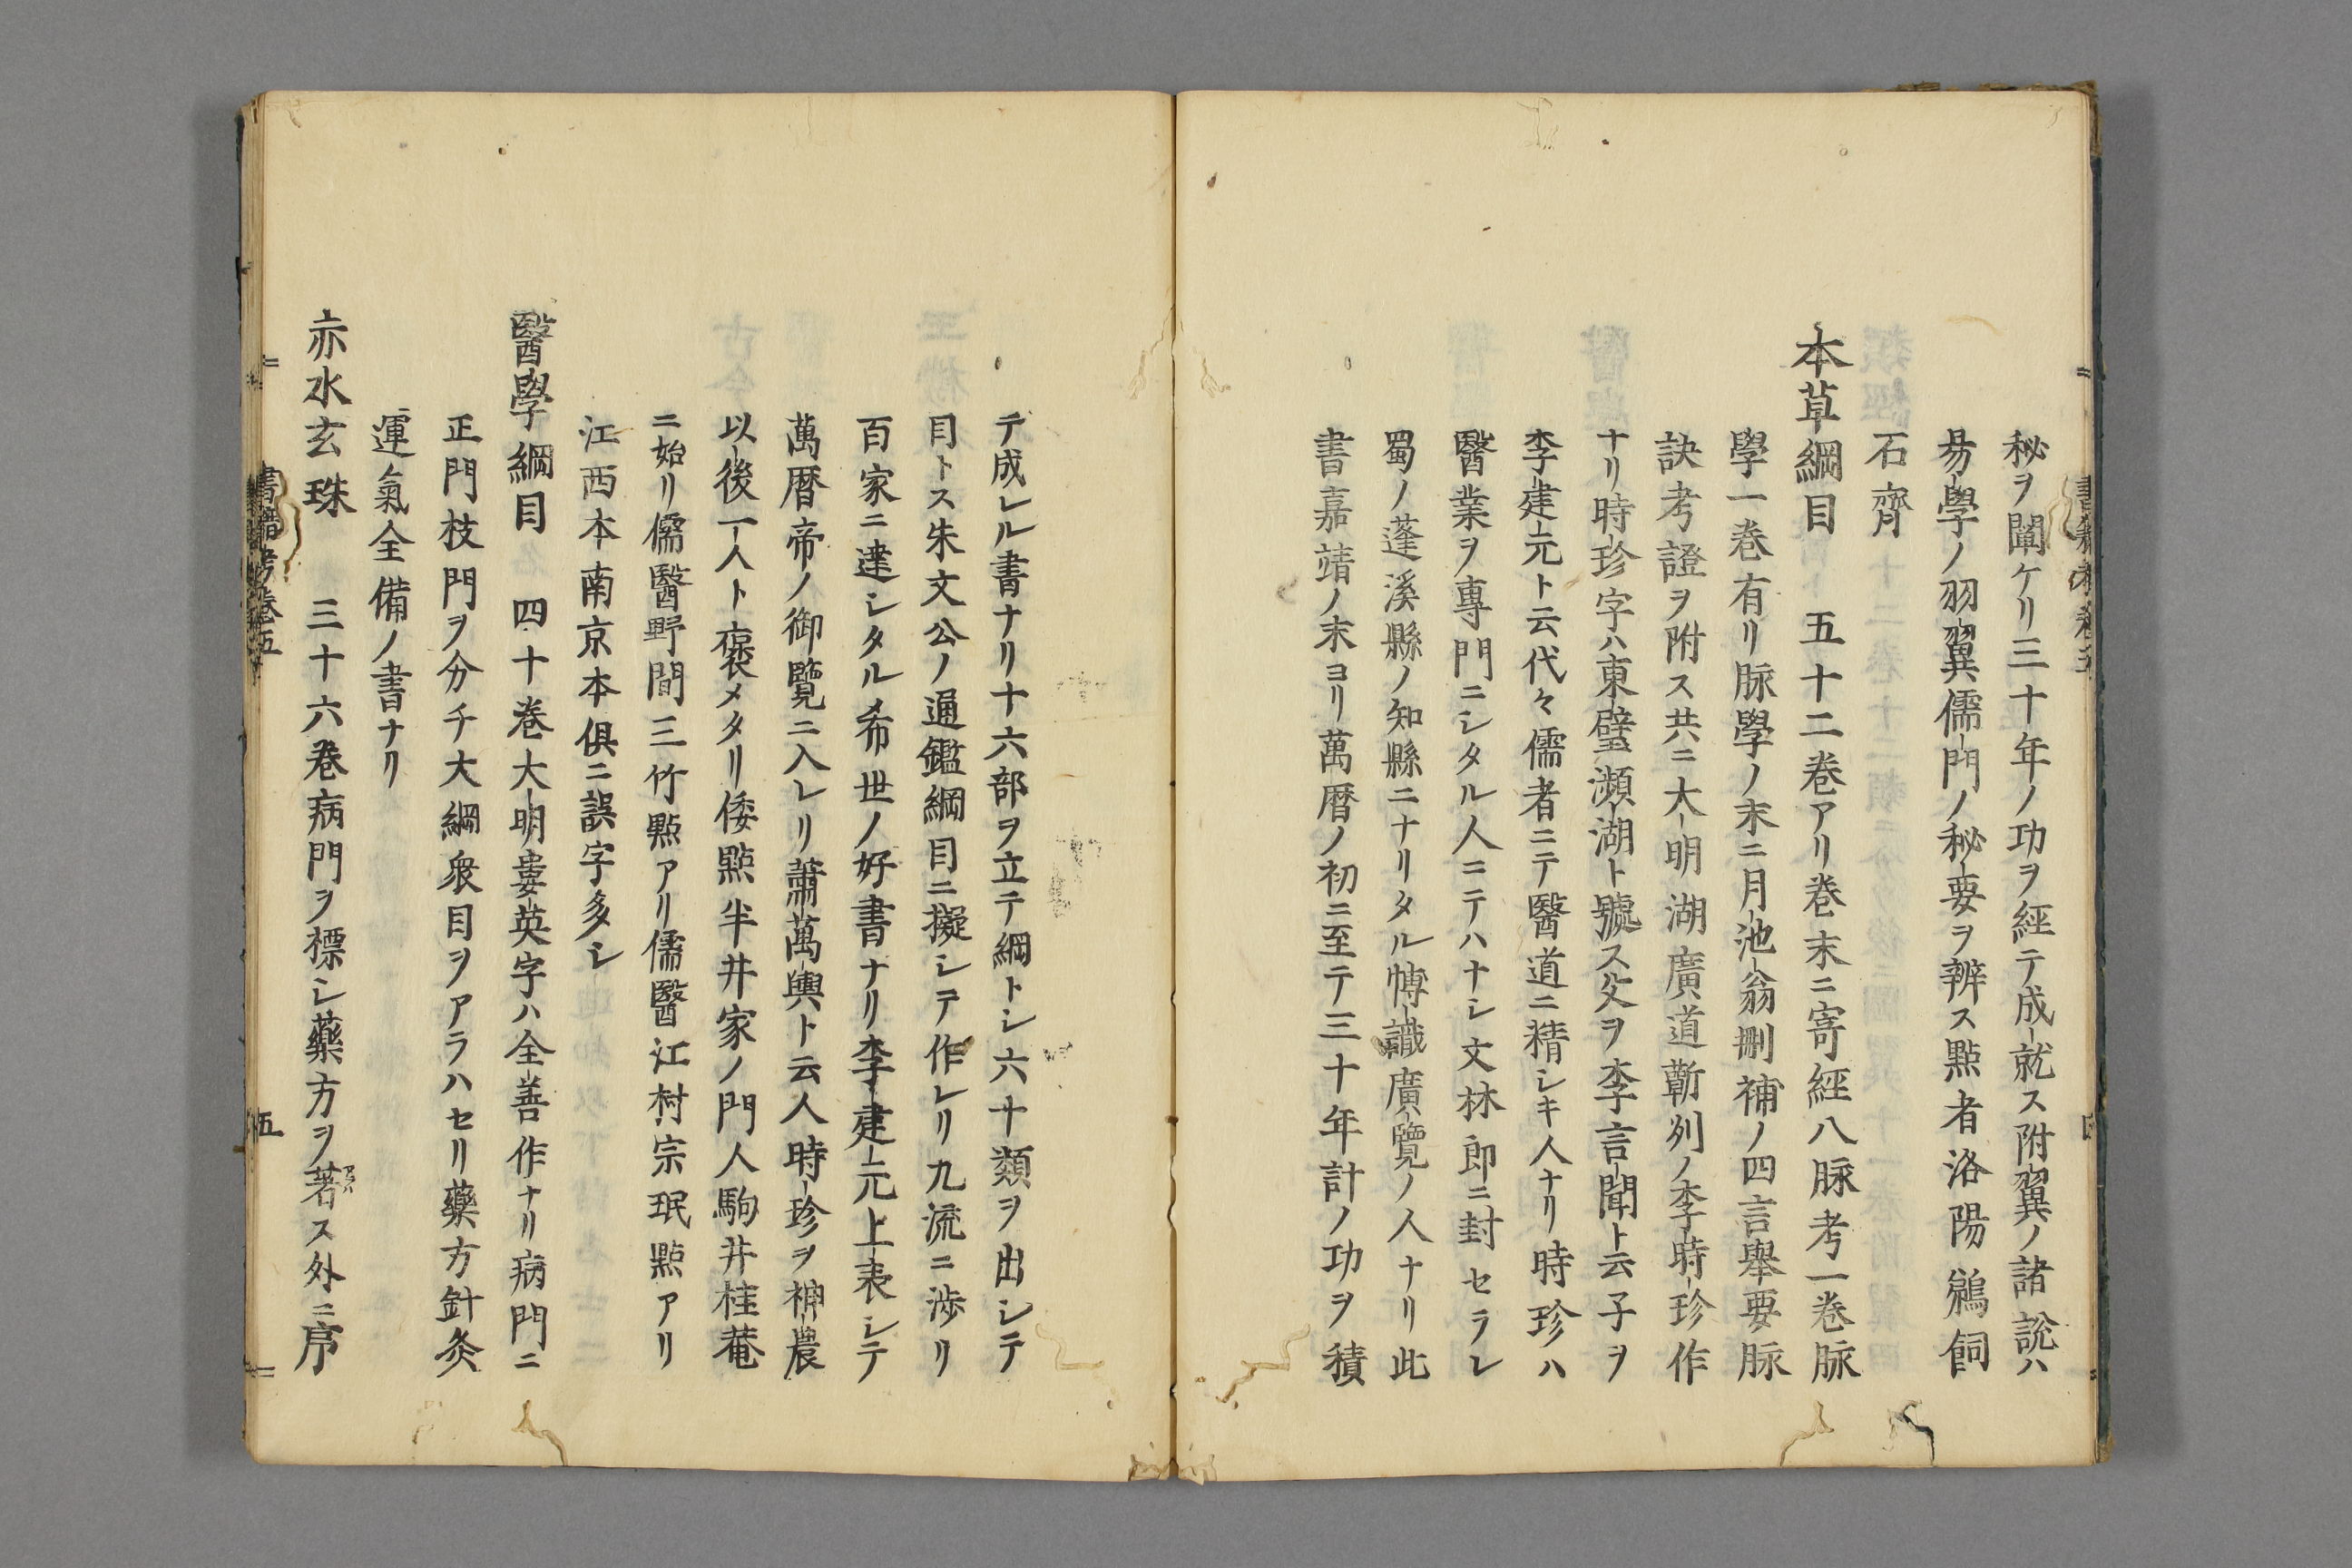 秘ヲ闡ケリ三十年ノ功ヲ經テ成就ス附翼ノ諸說ハ
易學ノ羽翼儒門ノ秘要ヲ辨ス點者洛陽鵜飼
石齊
本草綱目 五十二卷アリ卷末ニ寄經八脉考一卷脉
學一卷有リ脉學ノ末ニ月池翁刪補ノ四言舉要脉
訣考證ヲ附ス共ニ大明湖廣道蘄列ノ李時珍作
ナリ時珍字ハ東璧瀕湖ト號ス父ヲ李言聞ト云子ヲ
李建元ト云代々儒者ニテ醫道ニ精シキ人ナリ時珍ハ
醫業ヲ專門ニシタル人ニテハナシ文林郎ニ封セラレ
蜀ノ蓬溪縣ノ知縣ニナリタル博識廣覽ノ人ナリ此
書嘉靖ノ末ヨリ萬曆ノ初ニ至テ三十年計ノ功ヲ積
テ成レル書ナリ十六部ヲ立テ綱トシ六十類ヲ出シテ
目トス朱文公ノ通鑑綱目ニ擬シテ作レリ九流ニ渉リ
百家ニ達シタル希世ノ好書ナリ李建元上表シテ
萬曆帝ノ御覽ニ入レリ蕭萬輿ト云人時珍ヲ神農
以後一人ト褒メタリ倭點半井家ノ門人駒井桂菴
ニ始リ儒醫野間三竹點アリ儒醫江村宗珉點アリ
江西本南京本俱ニ誤字多シ
醫學綱目 四十卷大明婁英字ハ全善作ナリ病門ニ
正門枝門ヲ分チ大綱衆目ヲアラハセリ藥方針灸
運氣全備ノ書ナリ
赤水玄珠 三十六卷病門ヲ標シ藥方ヲ著ス外ニ序
書籍考卷五
五